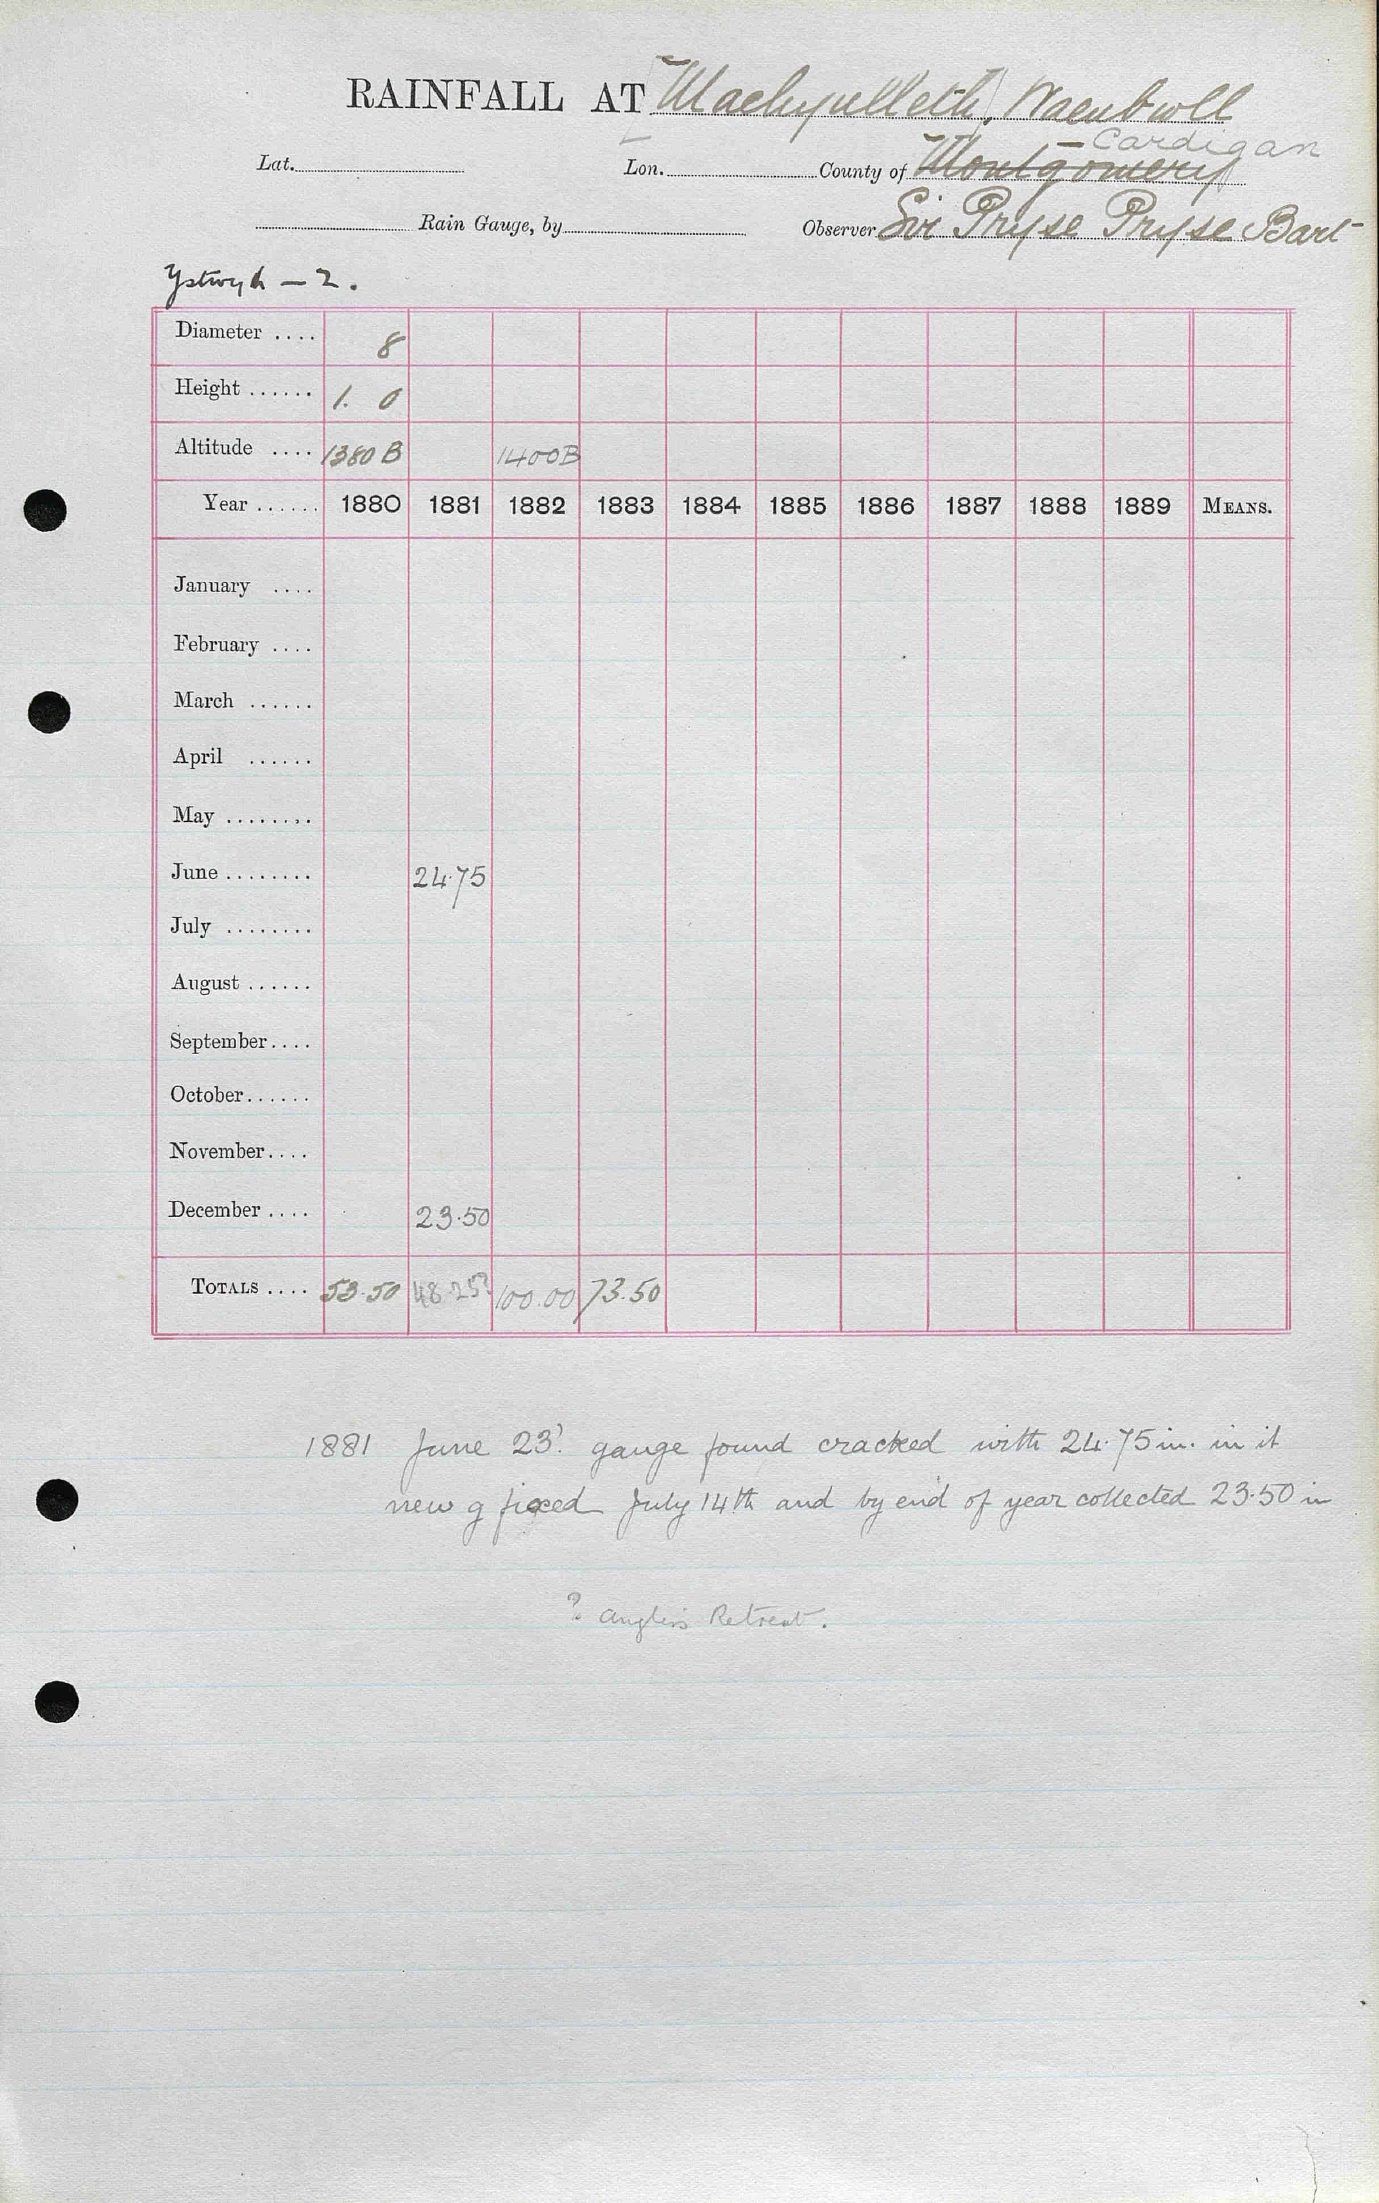 RAINFALL AT Machynlleth, Waenbwll
Cardigan
Lat. Lon. County of Montgomery
Rain Gauge, by Observer Sir Pryse Pryse Bart
Ystwyth – 2.
Diameter .... 8
Height ...... 1. 0
Altitude .... 1380 B 1400B
Year ...... 1880 1881 1882 1883 1884 1885 1886 1887 1888 1889 MEANS.
January ....
February ....
March ......
April ......
May ........
June ........ 24.75
July ........
August ......
September....
October......
November....
December .... 23.50
TOTALS .... 53.50 48.25? 100.00 73.50
1881 June 23? gauge found cracked with 24.75 in. in it
new g fixed July 14th and by end of year collected 23.50 in
? Anglers Retreat.